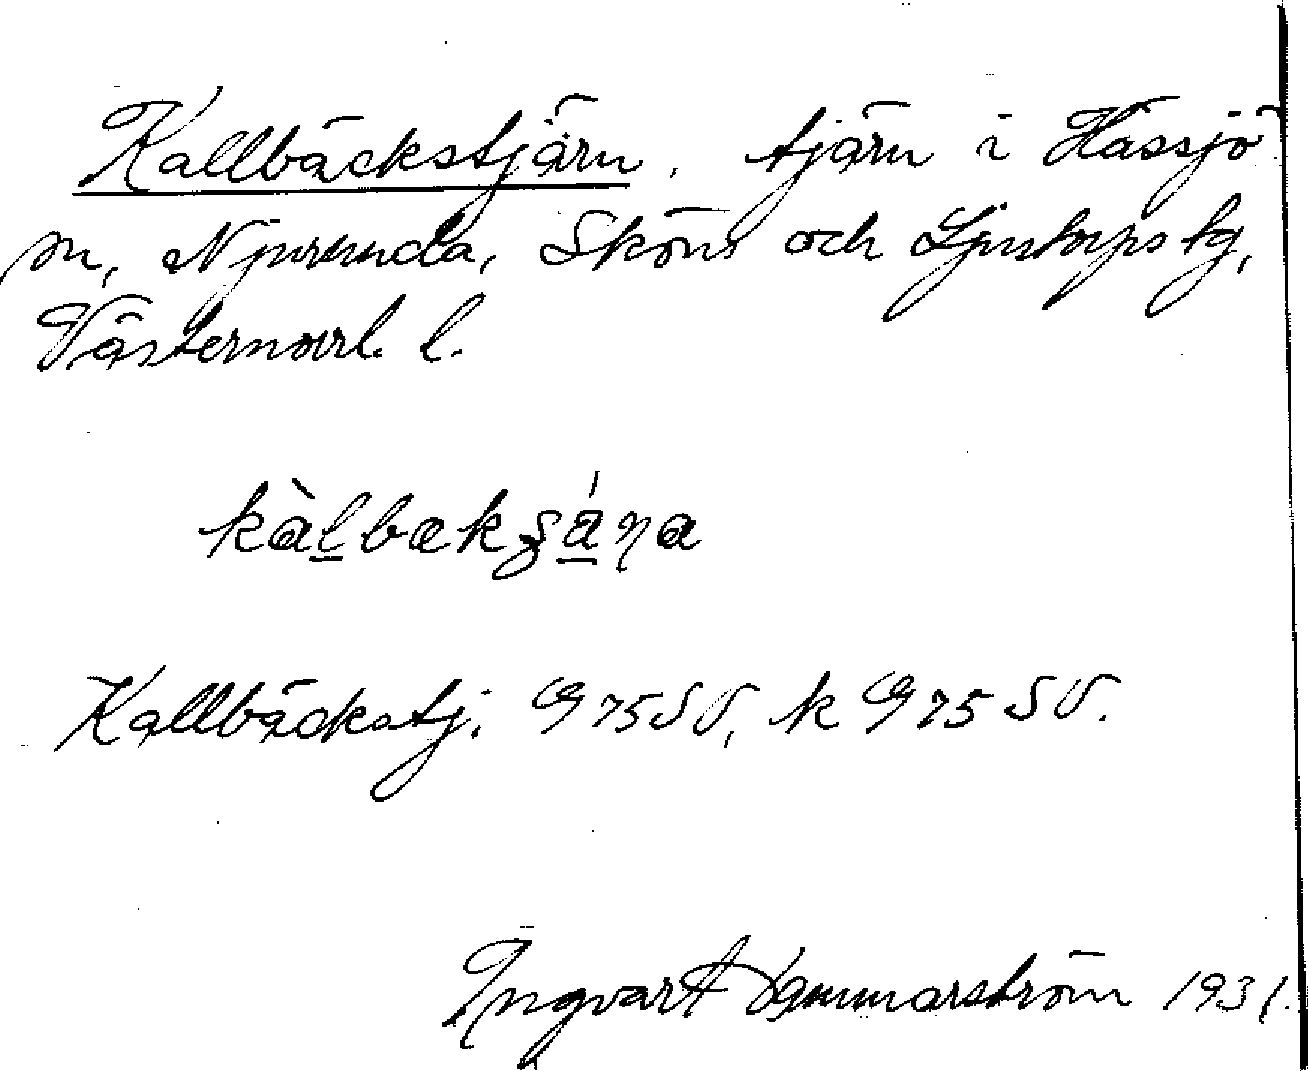 Kallbäckstjärn, tjärn i Hässjö
sn, Njurunda, Sköns och Ljustorps tg,
Västernorrl. l.
Kallbäckstj. G 75 SV, k G 75 SV.
Ingvar Hammarström 1931.